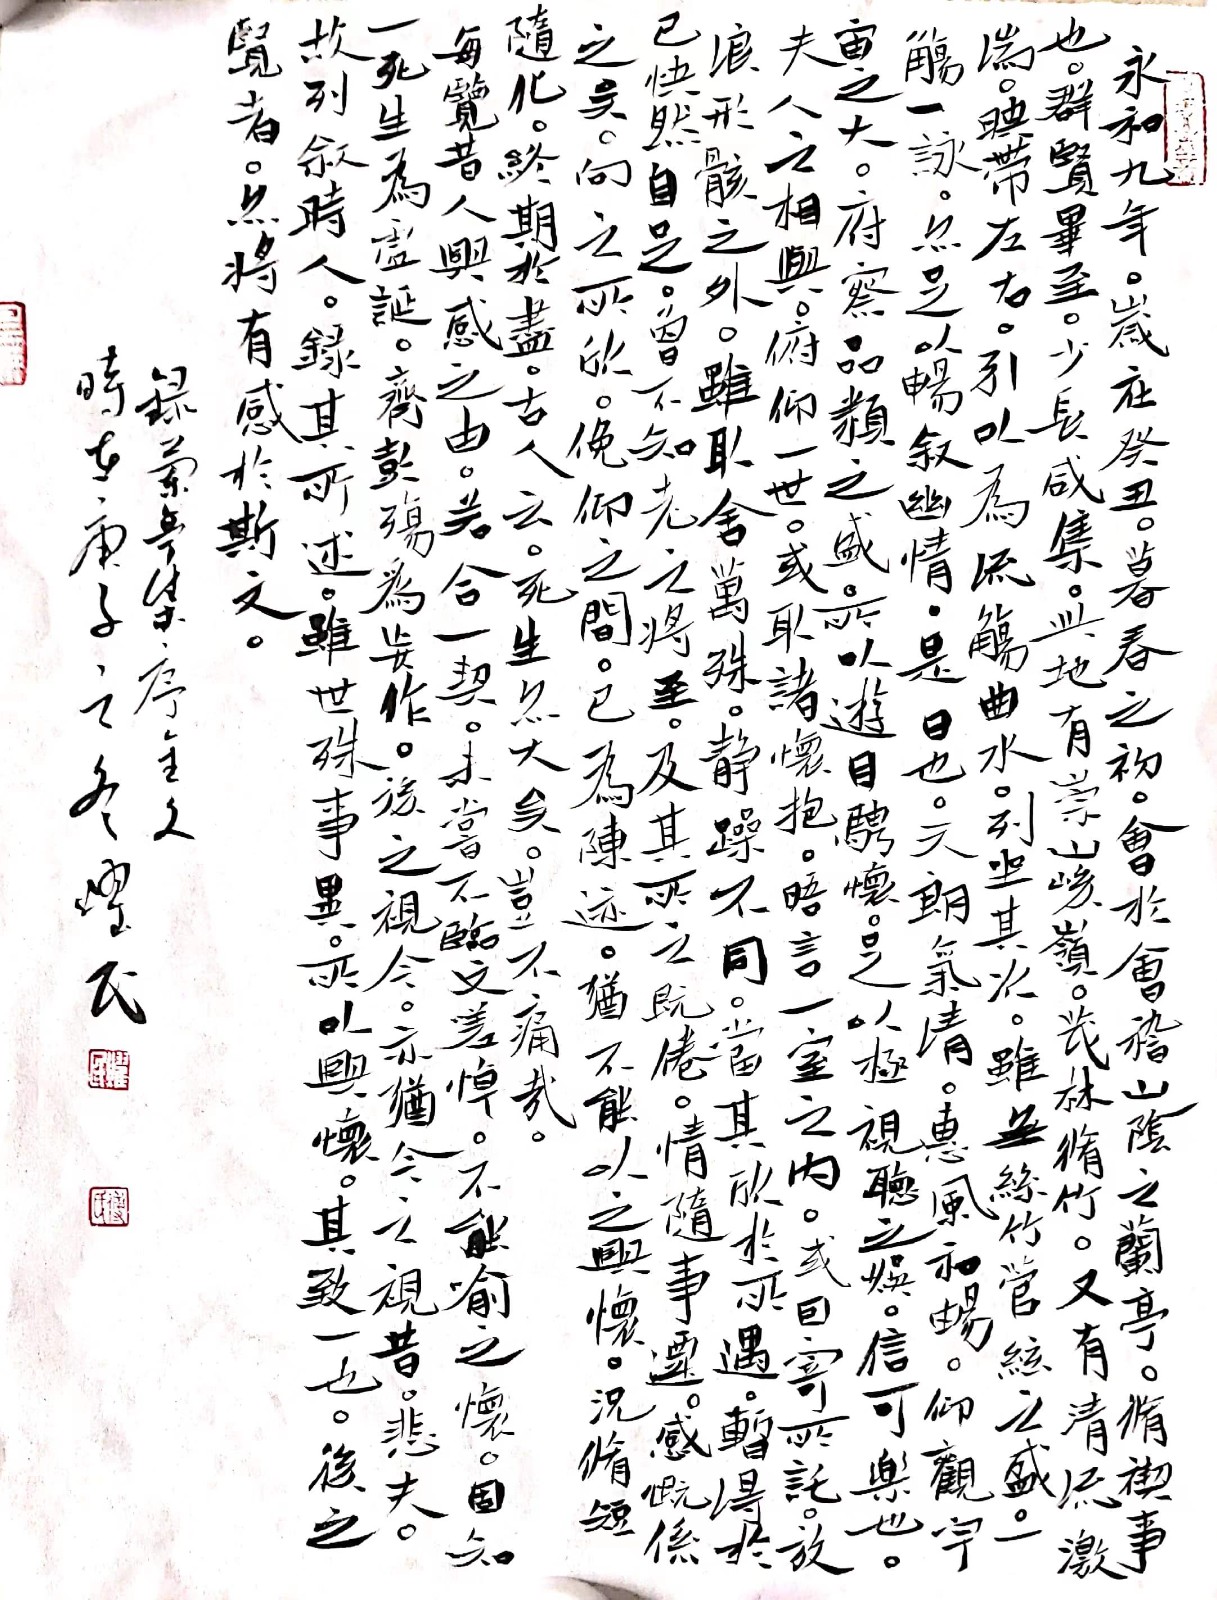 永和九年。歲在癸丑。暮春之初。會於會稽山陰之蘭亭。脩禊事
也。群賢畢至。少長咸集。此地有崇山峻嶺。茂林脩竹。又有清流激
湍。映帶左右。引以為流觴曲水。列坐其次。雖無絲竹管絃之盛。一
觴一詠。亦足以暢叙幽情。是日也。天朗氣清。惠風和暢。仰觀宇
宙之大。府察品類之盛。所以遊目騁懷。足以極視聽之娛。信可樂也。
夫人之相與。俯仰一世。或取諸懷抱。晤言一室之内。或因寄所託。放
浪形骸之外。雖取舍萬殊。静躁不同。當其欣於所遇。暫得於
己快然自足。曾不知老之將至。及其所之既倦。情隨事遷。感慨係
之矣。向之所欣。俛仰之間。已為陳迹。猶不能以之興懷。況脩短
隨化。終期於盡。古人云。死生亦大矣。豈不痛哉。
每覽昔人興感之由。若合一契。未嘗不臨文嗟悼。不能喻之懷。固知
一死生為虛誕。齊彭殤為妄作。後之視今。亦猶今之視昔。悲夫。
故列叙時人。録其所述。雖世殊事異。所以興懷。其致一也。後之
覽者。亦將有感於斯文。
録蘭亭集序全文
時在庚子之冬耀民